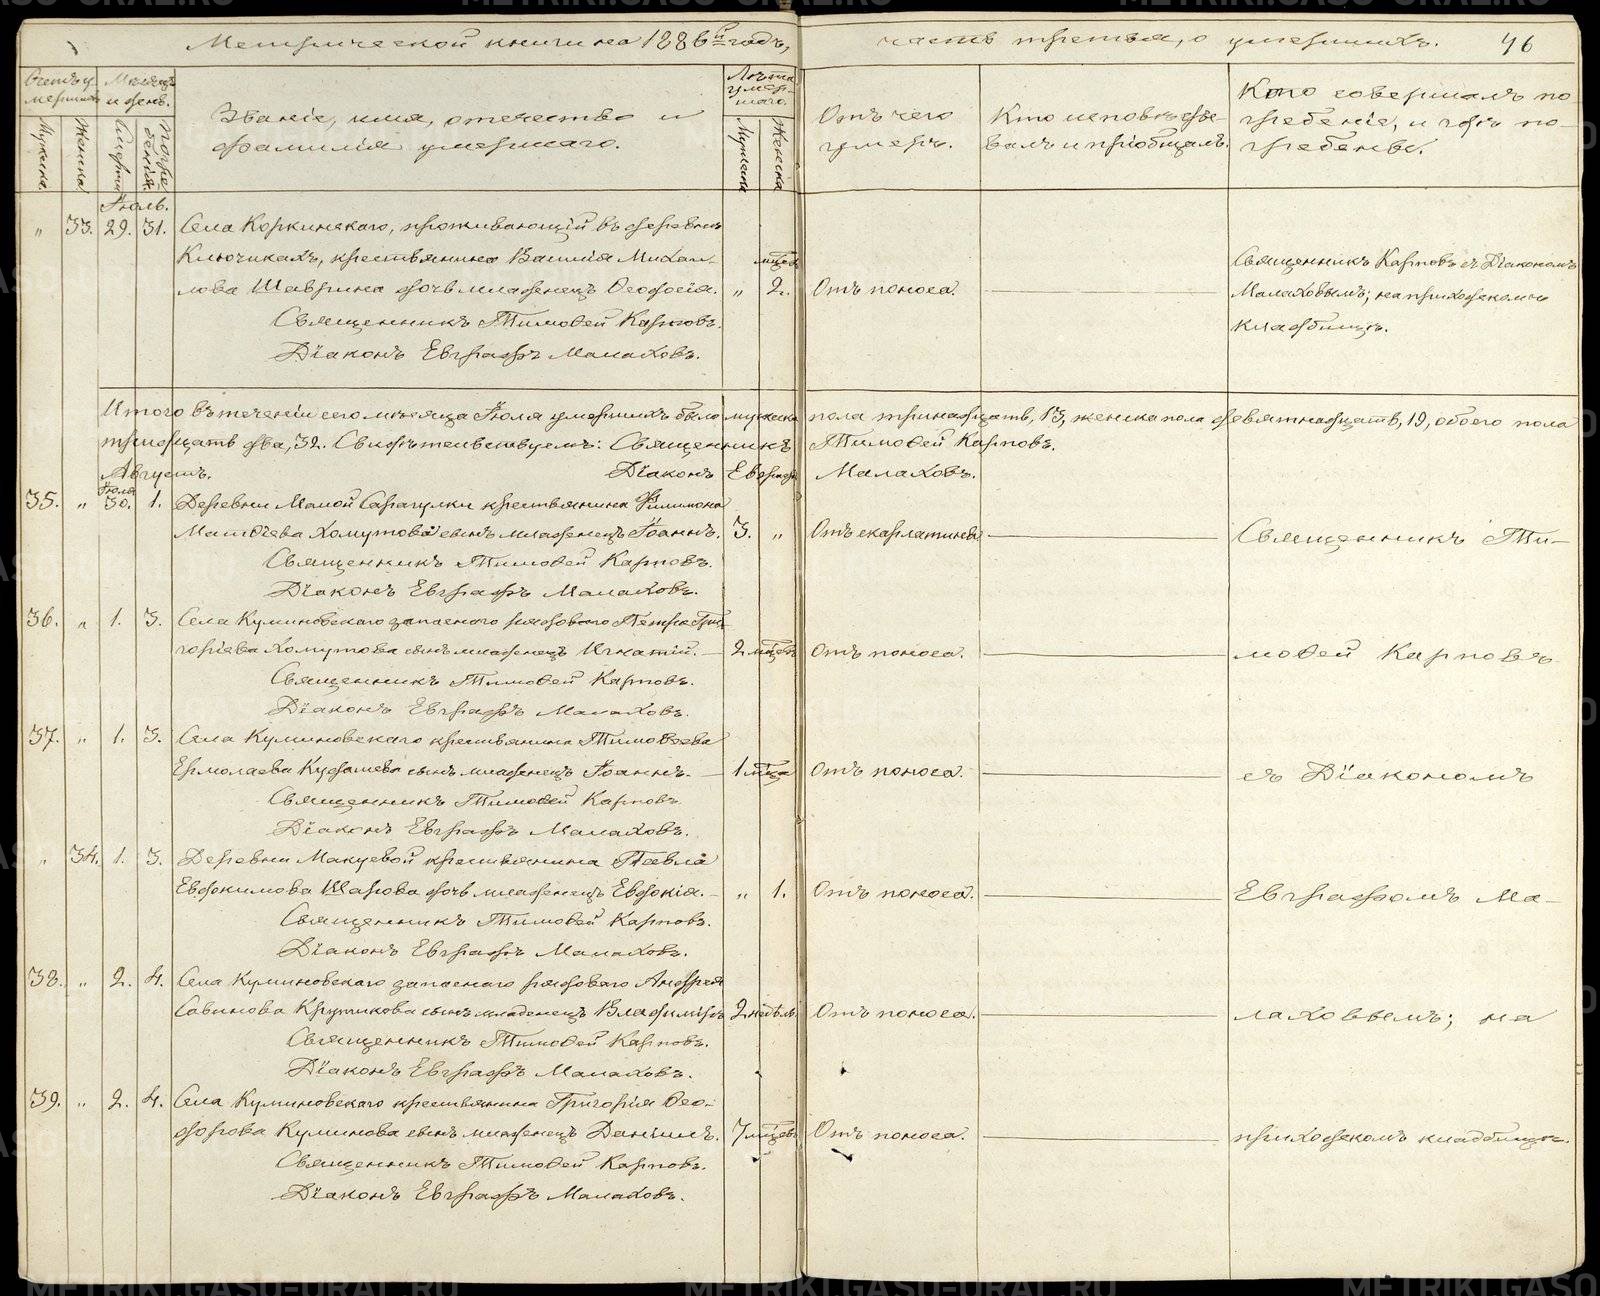 Метрической книги на 1886й годъ, часть третья, о умершихъ. 46
Счетъ умершихъ
Мѣсяцъ и день.
Званіе, имя, отечество и фамилія умершаго.
Лѣта умершаго.
Отъ чего умеръ.
Кто исповѣдывалъ и пріобщалъ.
Кто совершалъ погребеніе, и гдѣ погребены.
Мужеска. Женска Смерти Погребенія. Мужеска Женска
Іюль.
„ 33. 29. 31. Села Коркинскаго, проживающій въ деревнѣ
Ключикахъ, крестьянина Василія Михаи-
лова Шаврина дочь младенецъ Ѳеодосія. „ 2. мѣсяц Отъ поноса.
Священникъ Карповъ съ Діакономъ
Малаховымъ; на приходскомъ
кладбищѣ.
Священникъ Тимоѳей Карповъ.
Діаконъ Евграфъ Малаховъ.
Итого въ теченіи сего мѣсяца Іюля умершихъ было мужеска пола тринадцать, 13, женска пола девятнадцать, 19, обоего пола
тридцать два, 32. Свидѣтельствуемъ: Священникъ Тимоѳей Карповъ.
Августъ. Діаконъ Евграфъ Малаховъ.
Іюля
35. „ 30. 1. Деревни Малой Сарагулки крестьянина Филимона
Матѳѣева Хомутова сынъ младенецъ Іоаннъ. 3. „ Отъ скарлатины Священникъ Ти-
Священникъ Тимоѳей Карповъ.
Діаконъ Евграфъ Малаховъ.
36. „ 1. 3. Села Куминовскаго запаснаго рядоваго Петра Гри-
горіева Хомутова сынъ младенецъ Игнатій. 2 мѣсец Отъ поноса. моѳей Карповъ
Священникъ Тимоѳей Карповъ.
Діаконъ Евграфъ Малаховъ.
37. „ 1. 3. Села Куминовскаго крестьянина Тимоѳеева
Ермолаева Кудашева сынъ младенецъ Іоаннъ. 1 мѣсца Отъ поноса. съ Діакономъ
Священникъ Тимоѳей Карповъ.
Діаконъ Евграфъ Малаховъ.
„ 34. 1. 3. Деревни Макуевой крестьянина Павла
Евдокимова Шарова дочь младенецъ Евдокія. „ 1. Отъ поноса. Евграфомъ Ма-
Священникъ Тимоѳей Карповъ.
Діаконъ Евграфъ Малаховъ.
38. „ 2. 4. Села Куминовскаго запаснаго рядоваго Андрея
Савинова Крутикова сынъ младенецъ Владиміръ 2 недѣль Отъ поноса. лаховымъ; на
Священникъ Тимоѳей Карповъ.
Діаконъ Евграфъ Малаховъ.
39. „ 2. 4. Села Куминовскаго крестьянина Григорія Ѳео-
дорова Куминова сынъ младенецъ Даніилъ. 7 мѣсцев Отъ поноса. приходскомъ кладбищѣ.
Священникъ Тимоѳей Карповъ.
Діаконъ Евграфъ Малаховъ.
METRIKI.GASO-URAL.RU